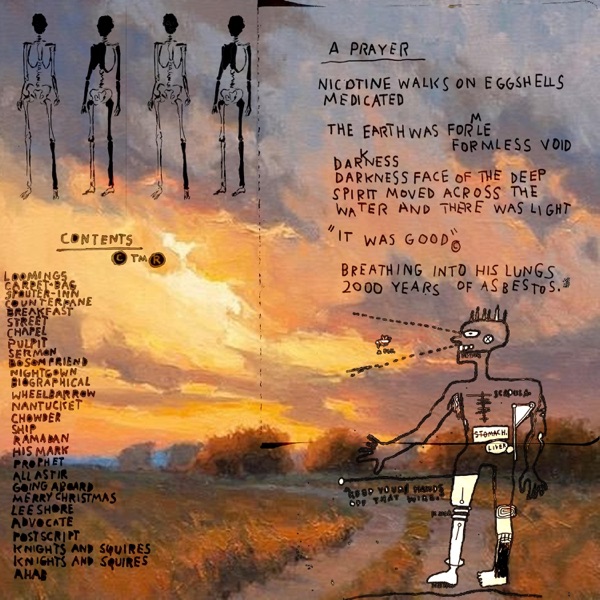 A PRAYER
NICOTINE WALKS ON EGGSHELLS
MEDICATED
THE EARTH WAS FORMLE
FORMLESS VOID
DARKNESS
DARKNESS FACE OF THE DEEP
SPIRIT MOVED ACROSS THE
WATER AND THERE WAS LIGHT
"IT WAS GOOD" ©
BREATHING INTO HIS LUNGS
2000 YEARS OF ASBESTOS.
CONTENTS
© TM ®
LOOMINGS
CARPET-BAG
SPOUTER-INN
COUNTERPANE
BREAKFAST
STREET
CHAPEL
PULPIT
SERMON
BOSOM FRIEND
NIGHTGOWN
BIOGRAPHICAL
WHEELBARROW
NANTUCKET
CHOWDER
SHIP
RAMADAN
HIS MARK
PROPHET
ALL ASTIR
GOING ABOARD
MERRY CHRISTMAS
LEE SHORE
ADVOCATE
POSTSCRIPT
KNIGHTS AND SQUIRES
KNIGHTS AND SQUIRES
AHAB
SCAPULA
STOMACH.
LIVER
"KEEP YOUR HANDS
OFF THAT